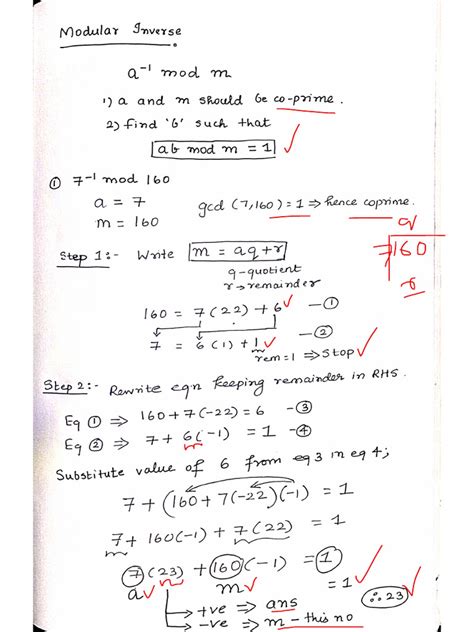 Modular Inverse
a⁻¹ mod m
1) a and m should be co-prime.
2) find 'b' such that
ab mod m = 1 ✓
① 7⁻¹ mod 160
a = 7
m = 160
gcd (7,160) = 1 ⇒ hence coprime.
q
7 160
r
Step 1:- Write m = aq+r
q - quotient
r → remainder
160 = 7(22) + 6 ✓ — ①
7 = 6(1) + 1 ✓ — ②
rem=1 ⇒ Stop ✓
Step 2:- Rewrite eqn keeping remainder in RHS.
Eq ① ⇒ 160+7(-22) = 6 — ③
Eq ② ⇒ 7 + 6(-1) = 1 — ④
Substitute value of 6 from eq 3 in eq 4;
7 + (160+7(-22))(-1) = 1
7 + 160(-1) + 7(22) = 1
7(23) + 160(-1) = 1
a ✓ m ✓ = 1 ✓ ∴ 23 ✓
→ +ve ⇒ ans
→ -ve ⇒ m - this no